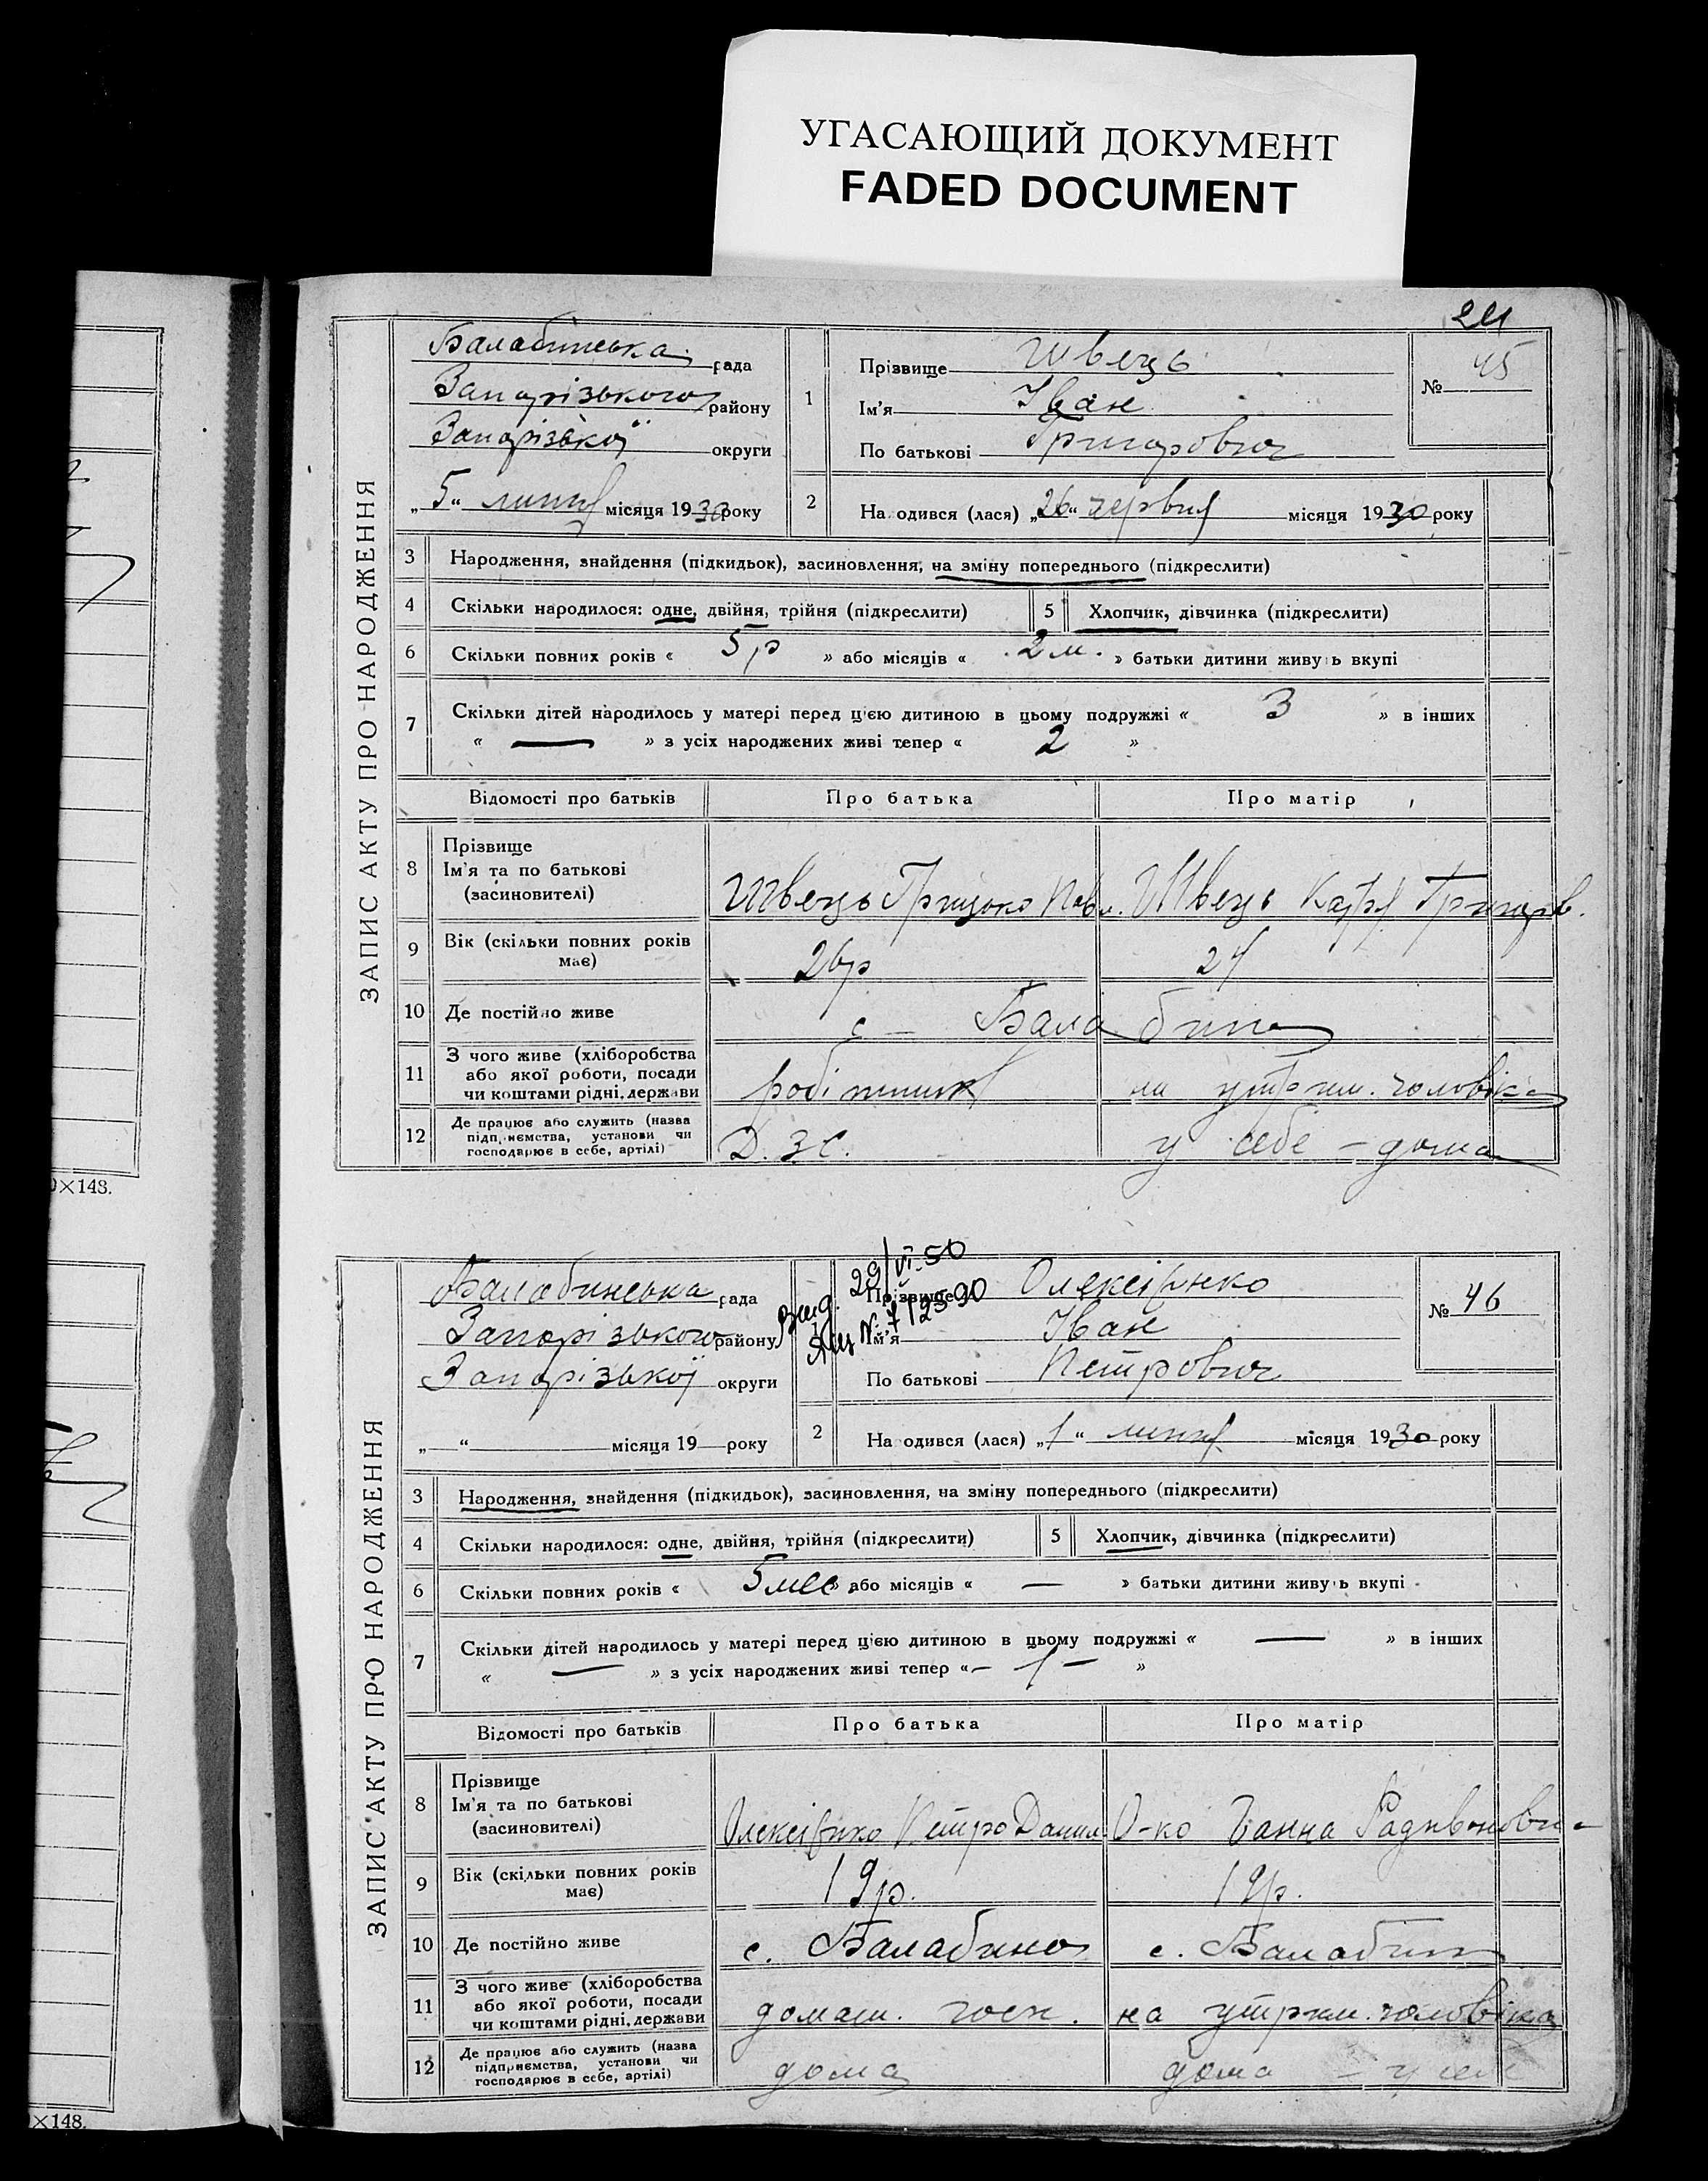 УГАСАЮЩИЙ ДОКУМЕНТ
FADED DOCUMENT
ЗАПИС АКТУ ПРО НАРОДЖЕННЯ
Балабинська рада
Запорізького району
Запорізької округи
„5“ липня місяця 1930 року
1
Прізвище Швець
Ім'я Іван
По батькові Григорович
№ 45
2
На одився (лася) „26“ червня місяця 1930 року
3 Народження, знайдення (підкидьок), засиновлення, на зміну попереднього (підкреслити)
4 Скільки народилося: одне, двійня, трійня (підкреслити) 5 Хлопчик, дівчинка (підкреслити)
6 Скільки повних років « 5 р » або місяців « 2 м. » батьки дитини живу ь вкупі
7 Скільки дітей народилось у матері перед цією дитиною в цьому подружжі « 3 » в інших
« — » з усіх народжених живі тепер « 2 »
Відомості про батьків Про батька Про матір
8 Прізвище
Ім'я та по батькові
(засиновителі)
Швець Грицько Павл. Швець Катря Григорів.
9 Вік (скільки повних років має) 26р 24
10 Де постійно живе с – Балабине
11 З чого живе (хліборобства
або якої роботи, посади
чи коштами рідні, держави
робітник на утрим. чоловіка
12 Де працює або служить (назва
підприємства, установи чи
господарює в себе, артілі)
Д. З С. у себе – дома
0×148.
ЗАПИС АКТУ ПРО НАРОДЖЕННЯ
Балабинська рада
Запорізького району
Запорізької округи
„ “ місяця 19 року
Вид. 29/VI-50
Прізвище Олексієнко
Ім'я Іван
По батькові Петрович
№ 46
2
На одився (лася) „1“ липня місяця 1930 року
3 Народження, знайдення (підкидьок), засиновлення, на зміну попереднього (підкреслити)
4 Скільки народилося: одне, двійня, трійня (підкреслити) 5 Хлопчик, дівчинка (підкреслити)
6 Скільки повних років « 5 мес » або місяців « — » батьки дитини живу ь вкупі
7 Скільки дітей народилось у матері перед цією дитиною в цьому подружжі « — » в інших
« — » з усіх народжених живі тепер « – 1 – »
Відомості про батьків Про батька Про матір
8 Прізвище
Ім'я та по батькові
(засиновителі)
Олексієнко Петро Данил. О-ко Ганна Радивоновн
9 Вік (скільки повних років має) 19р. 19р.
10 Де постійно живе с. Балабино с. Балабин
11 З чого живе (хліборобства
або якої роботи, посади
чи коштами рідні, держави
домаш. госп. на утрим. чоловіка
12 Де працює або служить (назва
підприємства, установи чи
господарює в себе, артілі)
дома дома – у себе
×148.